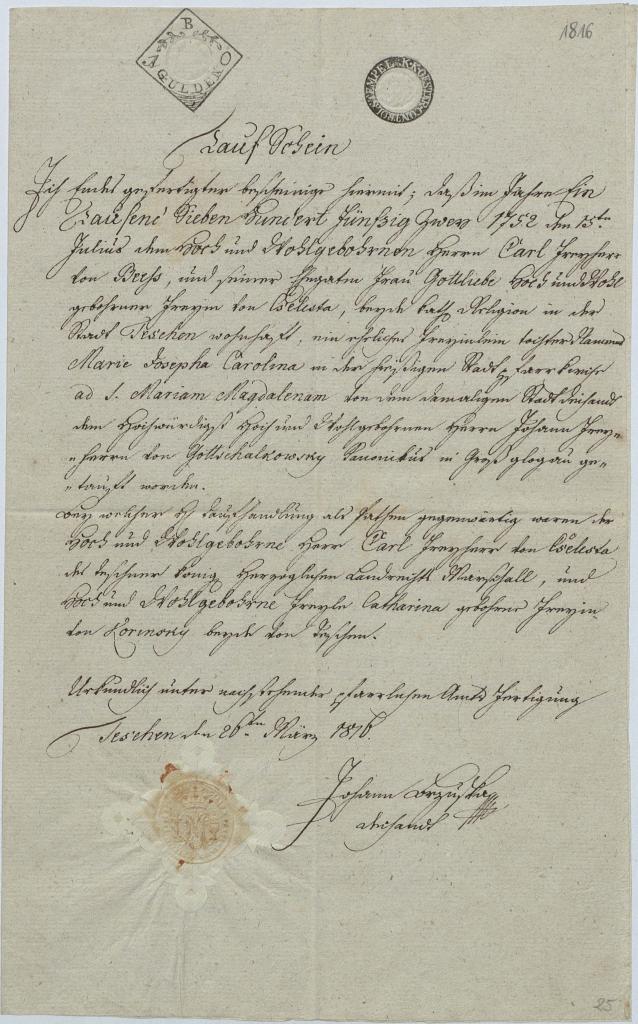 1816
B
A GULDEN O
STEMPEL K.K. CONTROL
Tauf Schein
Ich Endes gefertigter bescheinige hiermit; daß im Jahre Ein
Tausend Sieben Hundert Fünfzig Zwey 1752 den 15tn
Julius dem Hoch und Wohlgebohrnen Herrn Carl Freyherr
von Beess, und seiner Ehegatin Frau Gottliebe Hoch und Wohl
gebohrner Freyin von Cselesta, beyde kath. Religion in der
Stadt Teschen wohnhaft, ein ehrliches Freyinlein tochter Namens
Marie Josepha Carolina in der hiesigen Stadt pfarrkirche
ad S. Mariam Magdalenam von dem damaligen Stadt dechandt
dem Hochwürdigst Hoch und Wohlgebohrnen Herrn Johann Frey=
=herrn von Gottschalkowsky Canonikus in Groß glogau ge=
=tauft worden.
Bey welcher H. Taufhandlung als Pathen gegenwärtig waren der
Hoch und Wohlgebohrne Herr Carl Freyherr von Cselesta
des teschner König. Herzoglichen Landrechts Marschall, und
Hoch und Wohlgebohrne Freyle Catharina gebohrne Freyin
von Korinsky beyde von Teschen.
Urkundlich unter nachstehender pfarrlichen Amts fertigung
Teschen den 26tn März 1816.
Johann Brzuska
dechandt
25